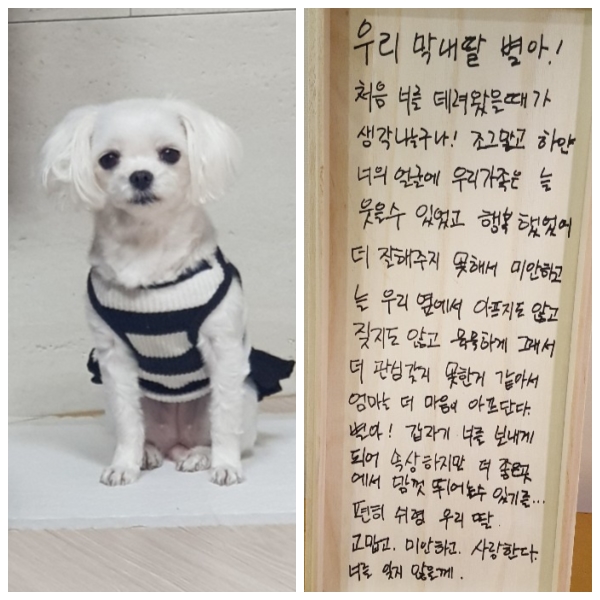 우리 막내딸 별아!
처음 너를 데려왔을때가
생각나는구나! 조그맣고 하얀
너의 얼굴에 우리가족은 늘
웃을수 있었고 행복 했었어
더 잘해주지 못해서 미안하고
늘 우리 옆에서 아프지도 않고
짖지도 않고 묵묵하게 그래서
더 관심갖지 못한거 같아서
엄마는 더 마음이 아프단다.
별아! 갑자기 너를 보내게
되어 속상하지만 더 좋은곳
에서 맘껏 뛰어놀수 있기를...
편히 쉬렴 우리 딸.
고맙고. 미안하고. 사랑한다.
너를 잊지 않을께.